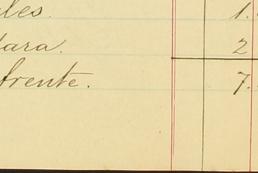 les. 1.
dara. 2
frente. 7.